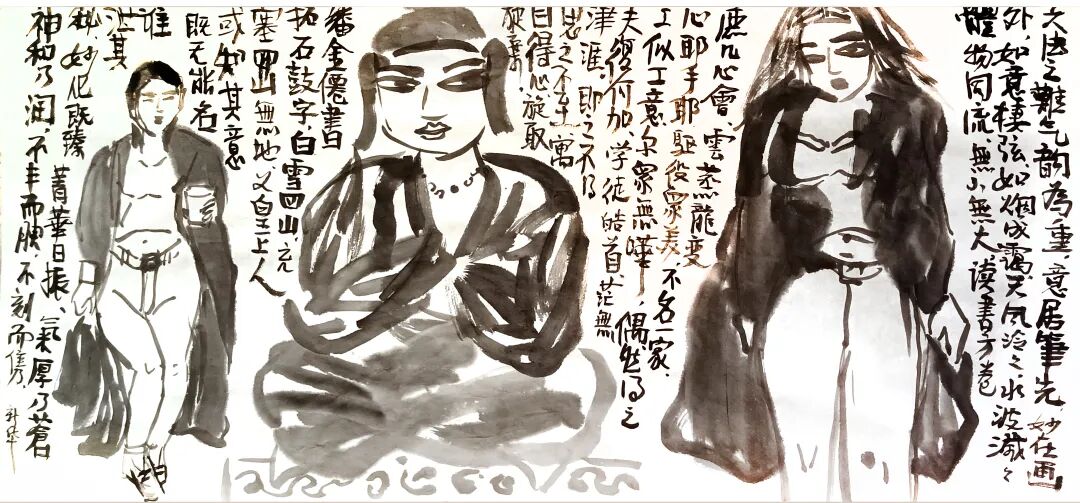 六法之難气韵為重，意居筆先，妙在画
外，如意棲弦如烟成靄天风泠々水波濊々
體物周流無小無大讀書万卷
庶几心會，雲蒸龍变
心耶手耶驱役眾美不名一家.
工似工意尔眾無嘩，偶然得之
夫復何加，学徒皓首，茫無
津涯，即之不得
思之不至寓
目得心旋取
旋棄
繙金僊書
拓石鼓字，白雪四山，充
塞四山無地义皇上人
或知其意
既无能名
誰
泄其
秘妙化既臻
菁華日振、氣厚乃蒼
神和乃润，不丰而腴，不刻而隽